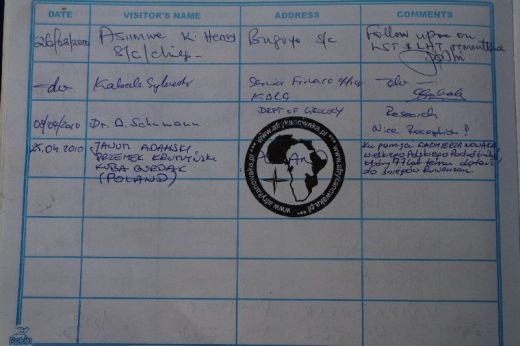 DATE VISITOR'S NAME ADDRESS COMMENTS
26/02/2010 Asiimwe K. Henry Bugoye S/c Follow up on
S/c/chief LST & LHT remittance
-do- Kabale Sylvester Senior Finance Officer -do-
KDLG
09/04/2010 Dr. A. Schumann DEPT OF GEOLOGY Research
Nice Reception!
25.04.2010 ADAMSKI Ku pamięci KAZIMIERZA NOWAKA
PRZEMEK wielkiego Polskiego Podróżnika
KUBA który 77 lat temu dotarł
(POLAND) do śniegów Ruwenzori.
POLAND
www.afrykanowaka.pl
www.afrykanowaka.pl